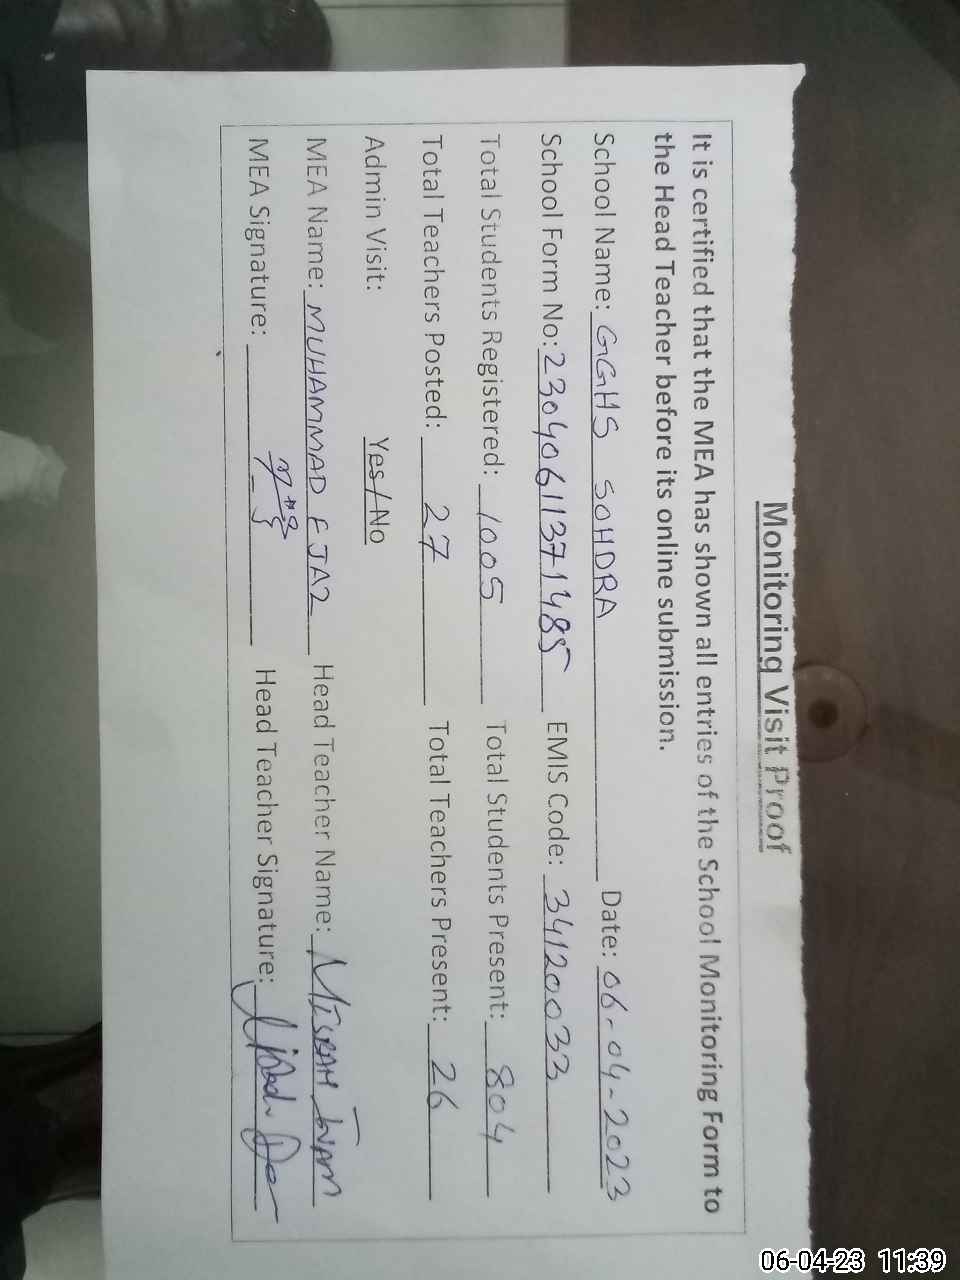 Monitoring Visit Proof
It is certified that the MEA has shown all entries of the School Monitoring Form to
the Head Teacher before its online submission.
School Name: GGHS SOHDRA Date: 06-04-2023
School Form No: 230406113714 85 EMIS Code: 34120033
Total Students Registered: 1005 Total Students Present: 804
Total Teachers Posted: 27 Total Teachers Present: 26
Admin Visit: Yes/No
MEA Name: MUHAMMAD EJAZ Head Teacher Name: MISBAH
MEA Signature: Head Teacher Signature:
06-04-23 11:39